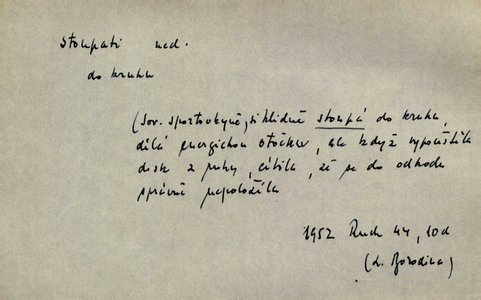 stoupati ned.
do kruhu
(Sov. sportovkyně) klidně stoupá do kruhu,
dělá energickou otočku, ale když vypouštěla
disk z ruky, cítila, že se do odhodu
správně nepoložila
1952 Rudé 44, 10d
(A. Borodina)